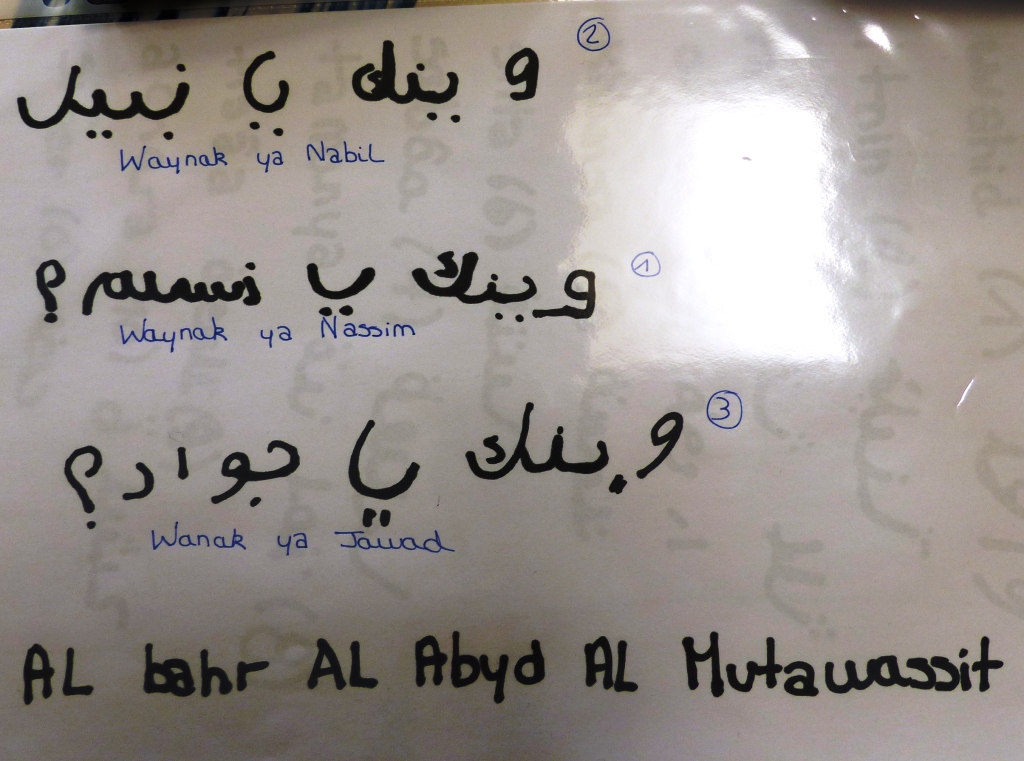 وينك يا نبيل ②
Waynak ya Nabil
وينك يا نسيم؟ ①
Waynak ya Nassim
وينك يا جواد؟ ③
Wanak ya Jawad
AL bahr AL Abyd AL Mutawassit